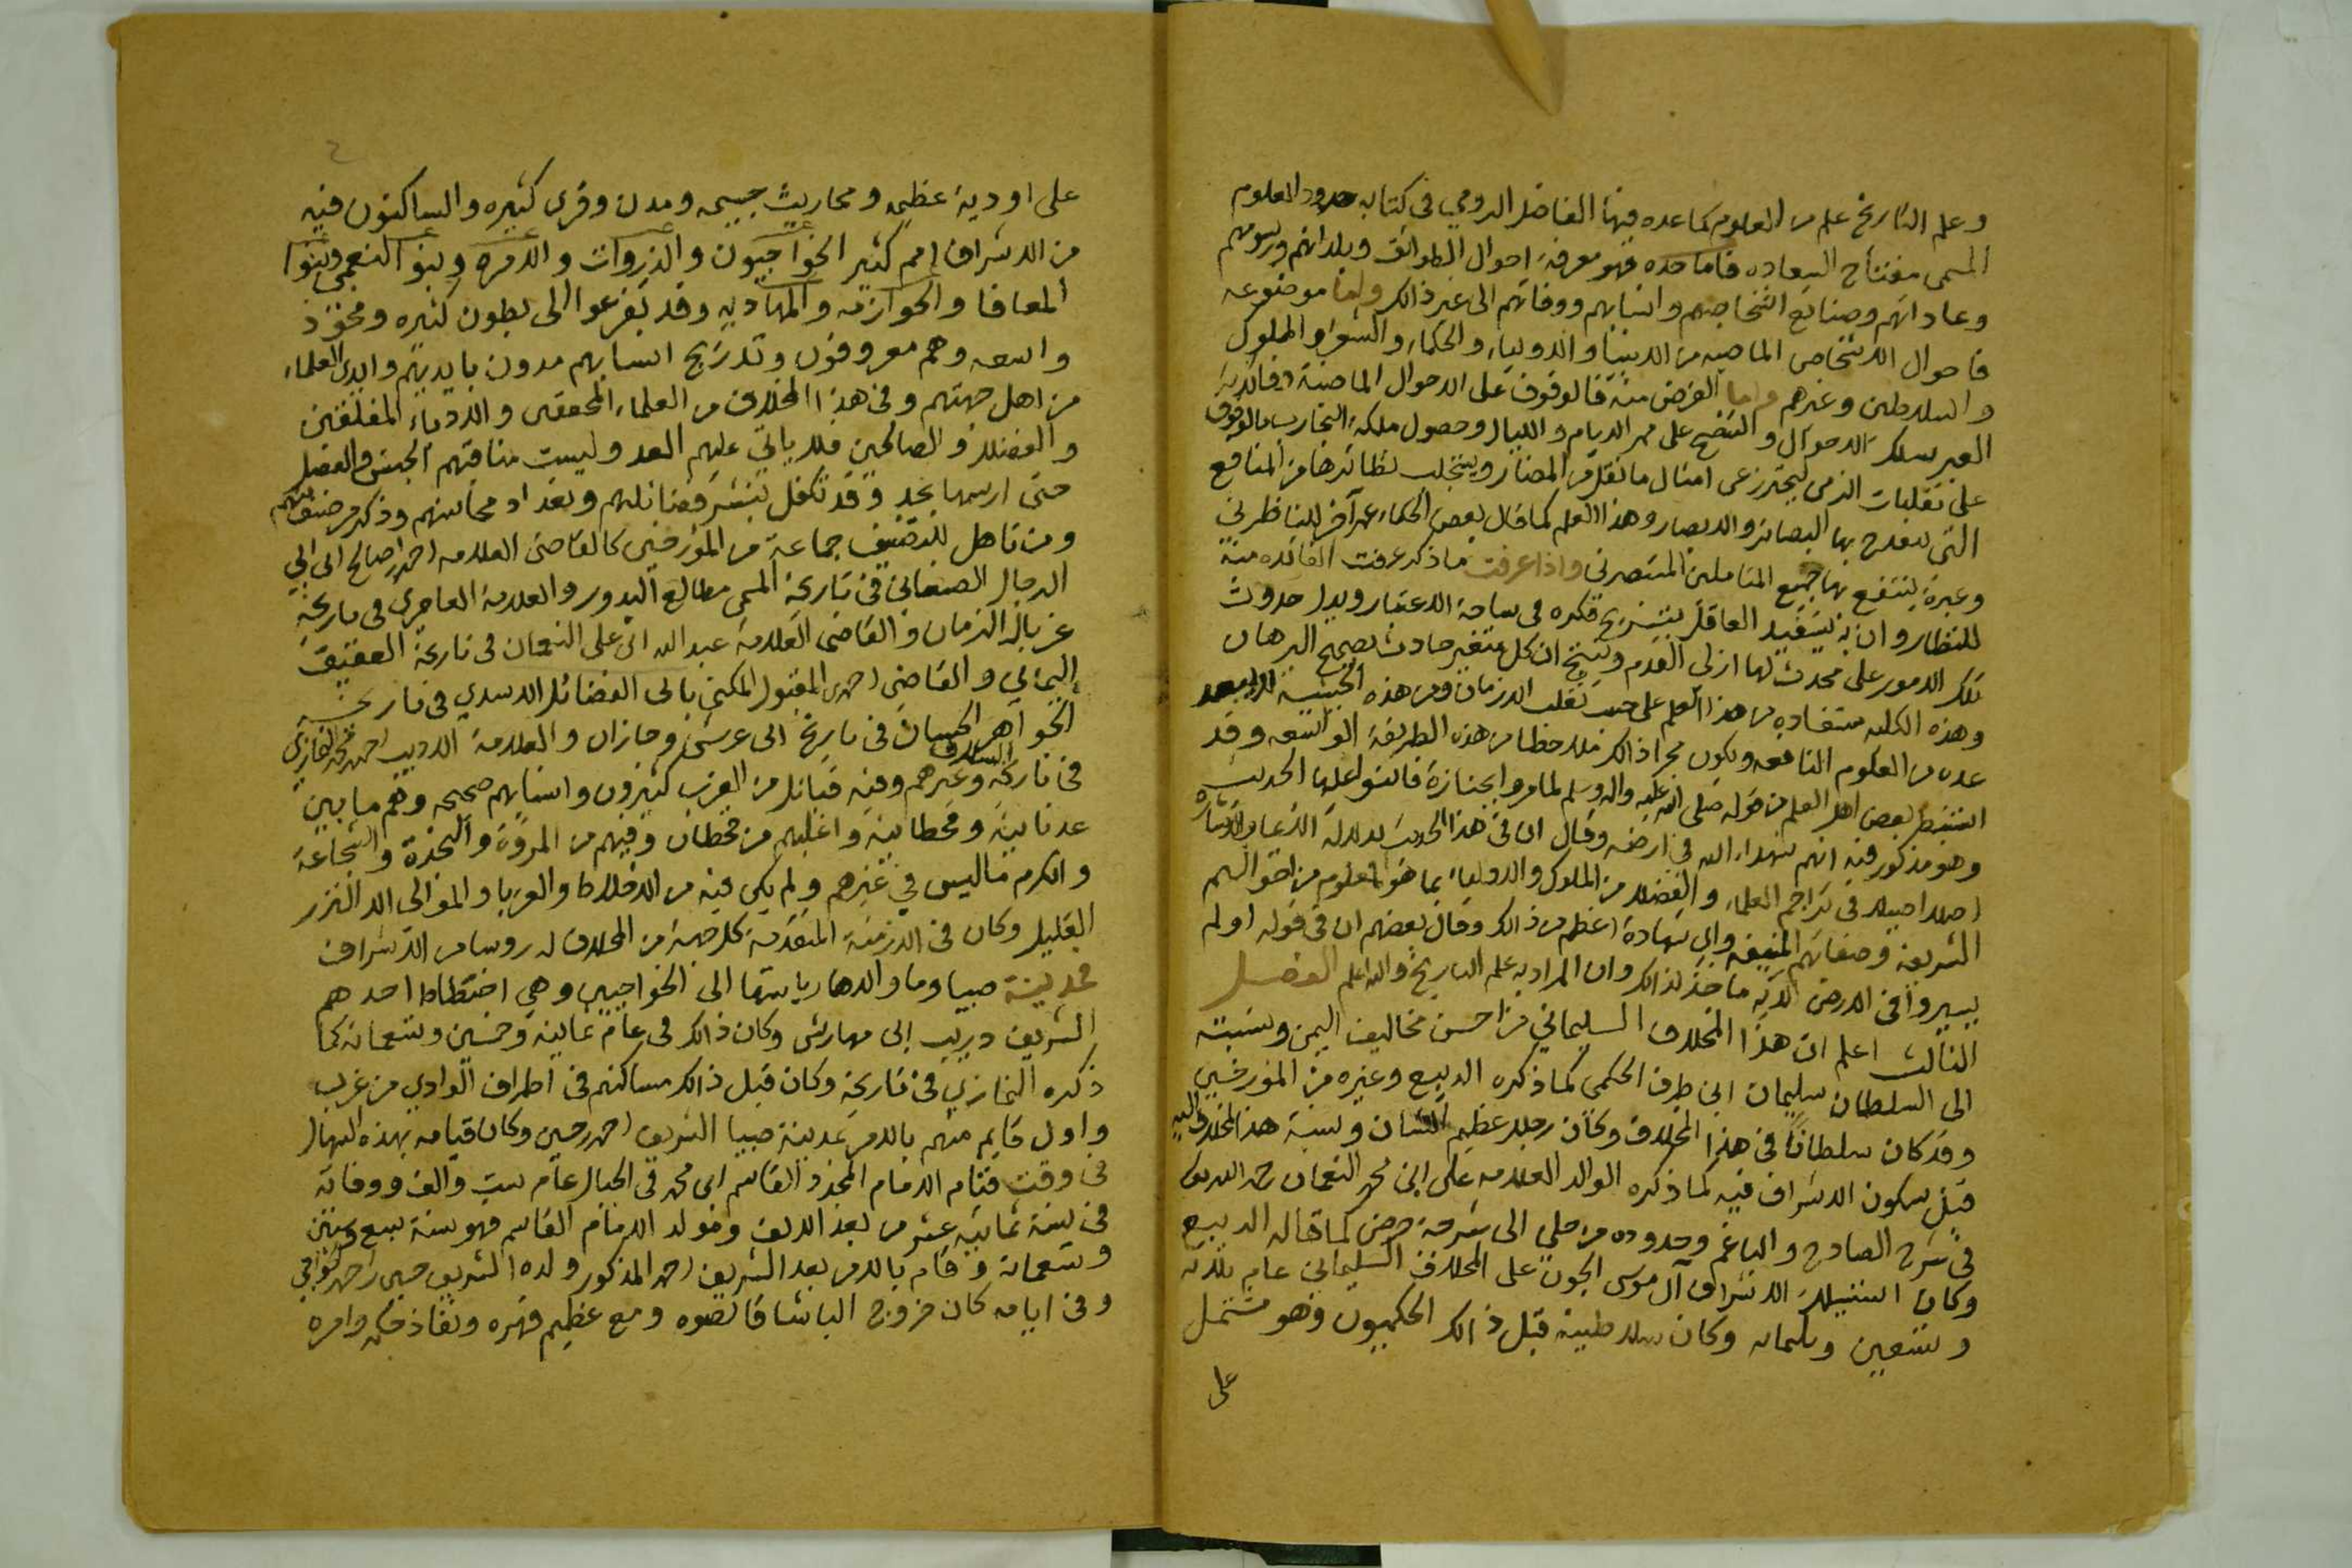 وعلم التاريخ علم من العلوم كما عده فيها الفاضل الرومي في كتابه حدود العلوم
المسمى مفتاح السعاده فاما حده فهو معرفة احوال الطوائف وبلدانهم ورسومهم
وعاداتهم وصنائع اشخاصهم وانسابهم ووفاتهم الى غير ذالك واما موضوعه
فاحوال الاشخاص الماضيه من الانبيا والاوليا، والحكما، والشعرا والملوك
والسلاطين وغيرهم واما الغرض منه فالوقوف على الاحوال الماضية وفائدته
العبر بتلك الاحوال والتنصح على مر الايام والليال وحصول ملكة التجارب بالوقوف
على تقلبات الزمن ليحترز عن امثال ما نقل من المضار ويستجلب نظائرها من المنافع
التي بها البصائر والابصار وهذا العلم كما قال بعض الحكماء عمر آخر للناظرين
وعبرة ينتفع بها جميع المتاملين المتبصرين واذا عرفت ما ذكر عرفت الفائده منه
للنظار وان به يستفيد العاقل فكره في ساحة الاعتبار ويدل حدوث
تلك الامور على محدث لها ازلي القدم وينتج ان كل متغير حادث بصحيح البرهان
وهذه الكليه مستفاده من هذا العلم على حسب تقلب الازمان ومن هذه الحيثيه
عده من العلوم النافعه ويكون مجرا ذالك ملاحظا من هذه الطريقة الواسعه وقد
استنبط بعض اهل العلم من قوله صلى الله عليه واله وسلم لما مروا بجنازة فاثنوا عليها الحديث
وهو مذكور فيه انهم شهداء الله في ارضه وقال ان في هذا الحديث
اصلا اصيلا في تراجم العلماء والفضلا من الملوك والاوليا، بما هو المعلوم من احوالهم
الشريفه وصفاتهم المنيفه واي شهادة اعظم من ذالك وقال بعضهم ان في قوله اولم
يسيروا في الارض الاية ماخذ لذالك وان المراد به علم التاريخ والله اعلم الفصل
الثالث اعلم ان هذا المخلاف السليماني من احسن مخاليف اليمن ونسبته
الى السلطان سليمان ابن طرف الحكمي كما ذكره الديبع وغيره من المؤرخين
وقد كان سلطانا في هذا المخلاف وكان رجلا عظيم الشان ونسبة هذا المخلاف اليه
قبل سكون الاشراف فيه كما ذكره الوالد العلامه علي ابن محمد النعمان رحمه الله
في شرح الصادح والباغم وحدوده من حلي الى شرجة حرض كما قاله الديبع
وكان استيلاء الاشراف آل موسى الجون على المخلاف السليماني عام ثلاثة
وتسعين وثلثمائه وكان سلاطينه قبل ذالك الحكميون وهو مشتمل
على
على اودية عظيمه ومحاريث جسيمه ومدن وقرى كثيره والساكنون فيه
من الاشراف امم كثير الخواجيون والذروات والامره وبنو النعمي وبنوا
المعافا والحوازمه والمهاديه وقد تفرعوا الى بطون كثيره
واسعه وهم معروفون وتدريج انسابهم مدون بايديهم وايدي العلماء
من اهل جهتهم وفي هذا المخلاف من العلماء المحققين والادباء المفلقين
والفضلا والصالحين فلا ياتي عليهم العد وليست مناقبهم
حتى ارسمها بحد وقد تكفل بنشر فضائلهم وتعداد محاسنهم وذكر
ومن تاهل للتصنيف جماعة من المؤرخين كالقاضي العلامه احمد ابن صالح ابن ابي
الرجال الصنعاني في تاريخه المسمى مطالع البدور والعلامة العامري في تاريخه
غربال الزمان والقاضي العلامة عبدالله ابن علي النعمان في تاريخه العقيق
اليماني والقاضي احمد المقبول المكنى بابي الفضائل الاسدي في تاريخه
الجواهر الحسان في تاريخ ابي عريش وجازان والعلامة الاديب احمد محمد النمازي
في تاريخه السلاف وغيرهم وفيه قبائل من العرب كثيرون وانسابهم صحيحه وهم ما بين
عدنانية وقحطانية واغلبهم من قحطان وفيهم من المروة والنجدة والشجاعة
والكرم ما ليس في غيرهم ولم يكن فيه من الاخلاط والغربا والموالي الا النزر
القليل وكان في الازمنة المتقدمة كل جهة من المخلاف له روسا من الاشراف
فمدينة صبيا وما والاها رياستها الى الخواجيين وهي اختطاط احدهم
الشريف دريب ابن مهارش وكان ذالك في عام ثمانية وخمسين وتسعمائة كما
ذكره النمازي في تاريخه وكان قبل ذالك مساكنهم في اطراف الوادي من غرب
واول قايم منهم بالامر بمدينة صبيا الشريف احمد حسين وكان قيامه بهذه
في وقت قيام الامام المجدد القاسم ابن محمد في الجبال عام ست والف ووفاته
في سنة ثمانية عشر من بعد الالف ومولد الامام القاسم فهو سنة سبع وستين
وتسعمائة وقام بالامر بعد الشريف احمد المذكور ولده الشريف حسين احمد الخواجي
وفي ايامه كان خروج الباشا قانصوه ومع عظيم قهره ونفاذ حكمه وامره